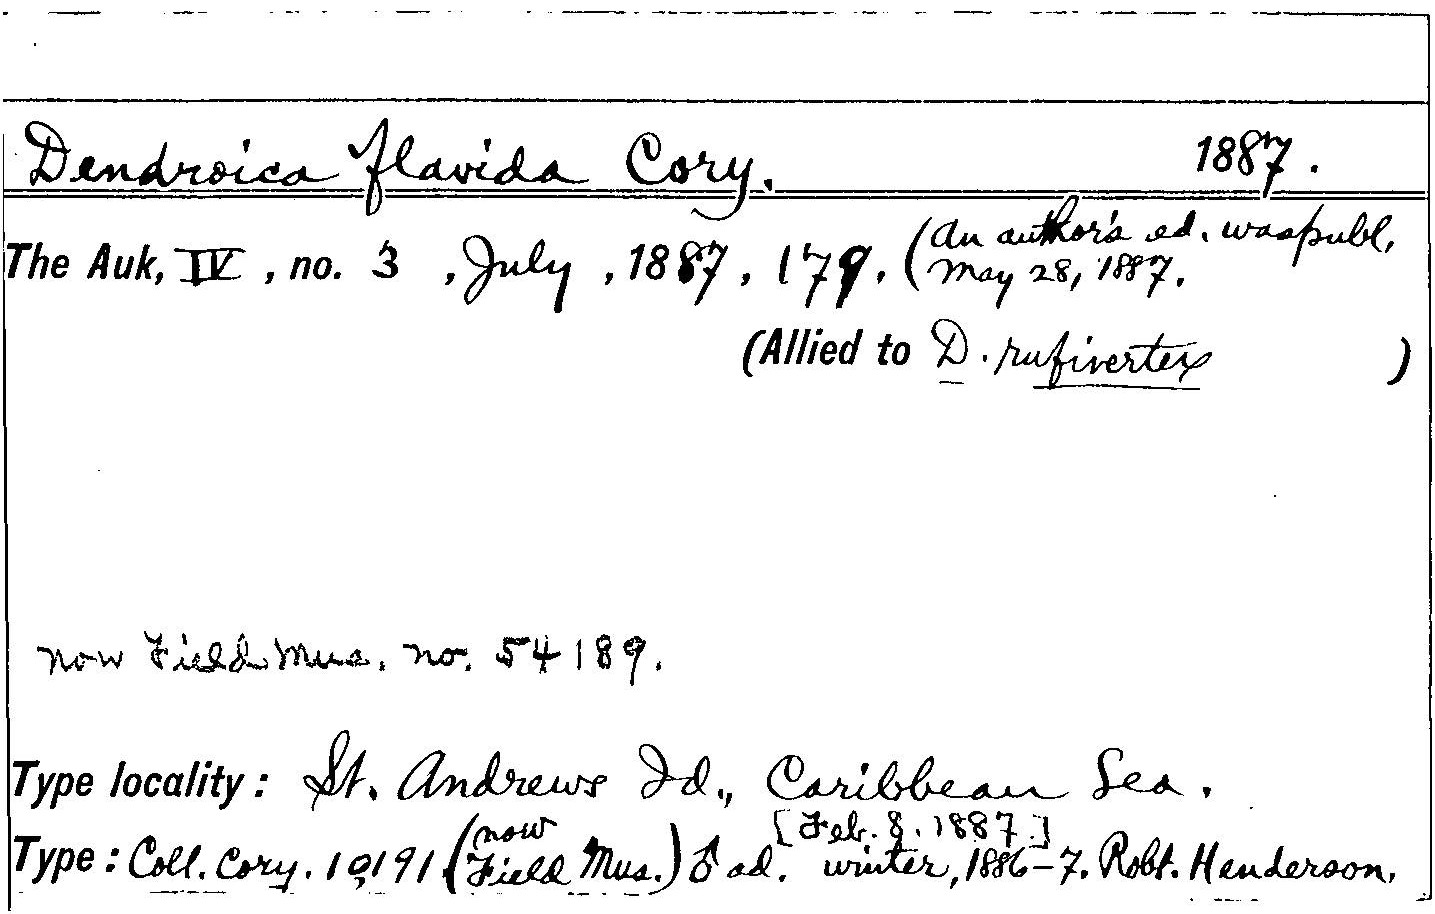 Dendroica flavida Cory. 1887.
The Auk, IV, no. 3, July, 1887, 179. (An author's ed. was publ.
May 28, 1887.
(Allied to D. rufivertex )
now Field Mus. no. 54189.
Type locality: St. Andrews Id., Caribbean Sea.
[Feb. 8. 1887.]
Type: Coll. Cory. 10,191 (now Field Mus.) ♂ ad. winter, 1886-7. Robt. Henderson.